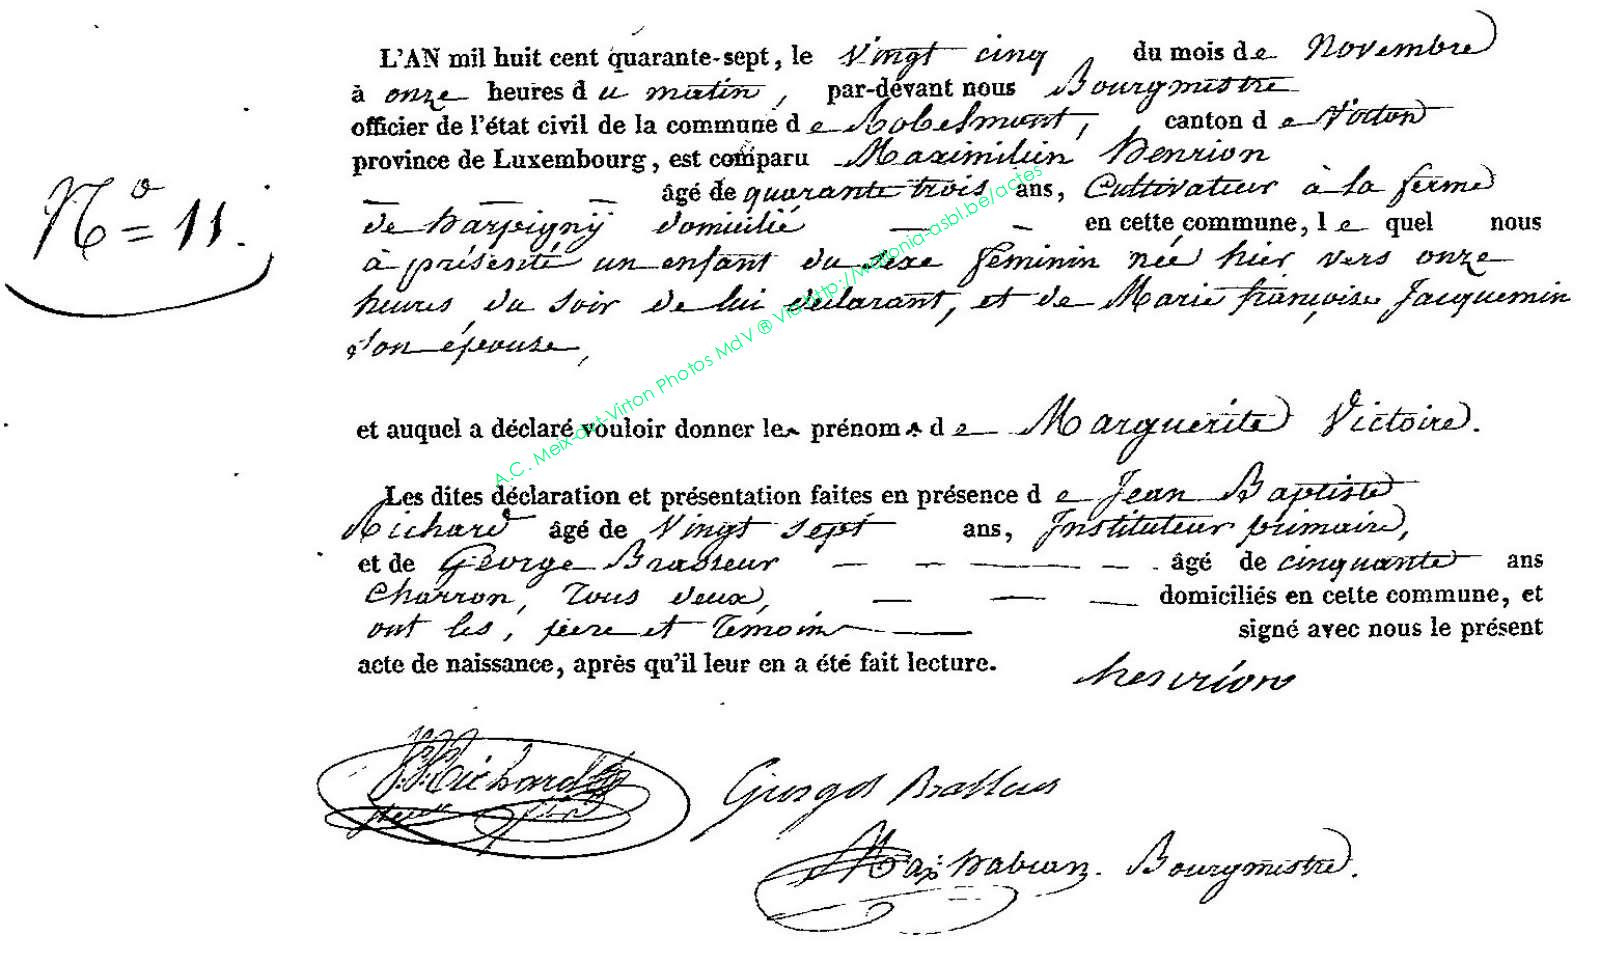 L'AN mil huit cent quarante-sept, le vingt cinq du mois de Novembre
à onze heures du matin, par-devant nous Bourgmestre
officier de l'état civil de la commune de Robelmont, canton de Virton
province de Luxembourg, est comparu Maximilien Henrion
âgé de quarante trois ans, Cultivateur à la ferme
de harpigny domicilié en cette commune, le quel nous
N° = 11.
à présenté un enfant du sexe féminin née hier vers onze
heures du soir de lui déclarant, et de Marie françoise Jacquemin
son épouse,
et auquel a déclaré vouloir donner les prénoms de Marguerite Victoire.
Les dites déclaration et présentation faites en présence de Jean Baptiste
Richard âgé de vingt sept ans, Instituteur primaire,
et de George Brasseur âgé de cinquante ans
Charron, Tous deux, domiciliés en cette commune, et
ont les, père et Témoins signé avec nous le présent
acte de naissance, après qu'il leur en a été fait lecture.
henrion
Richard
Bourgmestre.
A.C. Meix-dvt-Virton Photos MdV ® Vio http://wallonia-asbl.be/actes